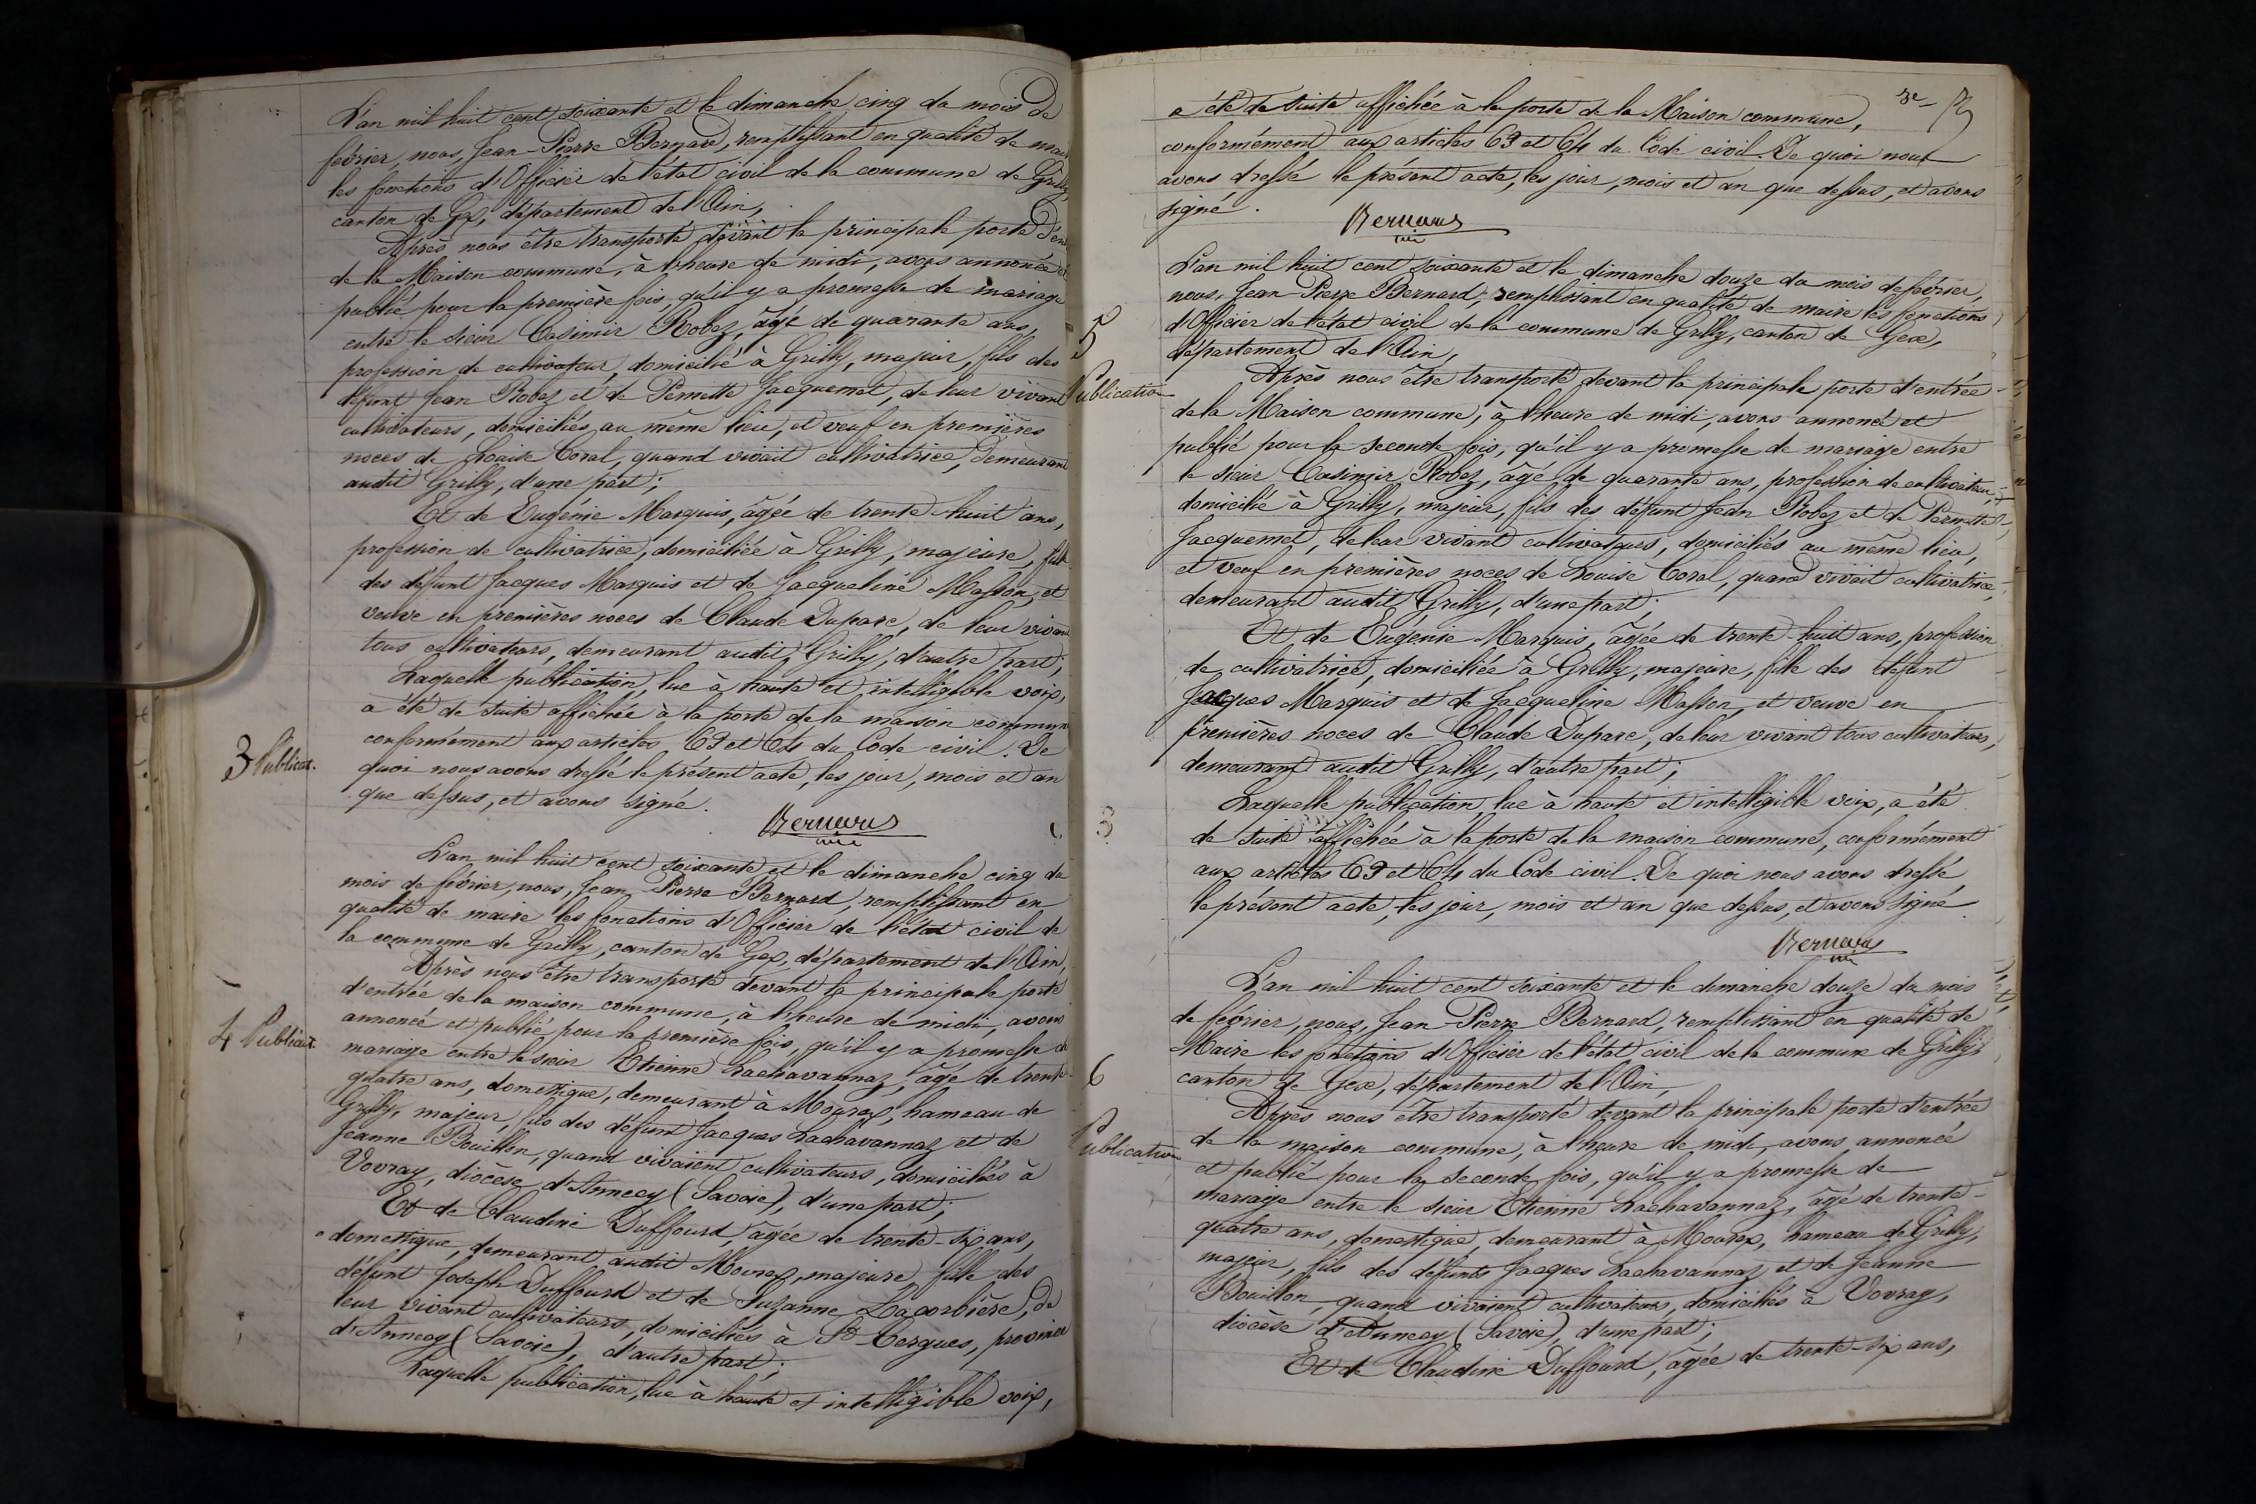 L'an mil huit cent soixante et le dimanche cinq du mois de
février, nous, Jean-Pierre Bernard, remplissant en qualité de maire
les fonctions d'Officier de l'état civil de la commune de Grilly,
canton de Gex, département de l'Ain,
Après nous être transporté devant la principale porte d'en
de la Maison commune, à l'heure de midi, avons annoncé et
publié pour la première fois, qu'il y a promesse de mariage
entre le sieur Casimir Robez, âgé de quarante ans,
profession de cultivateur, domicilié à Grilly, majeur, fils des
défunt Jean Robez et de Pernette Jacquemet, de leur vivant
cultivateurs, domiciliés au même lieu, et veuf en premières
noces de Louise Coral, quand vivait cultivatrice, demeurant
audit Grilly, d'une part;
Et de Eugénie Marquis, âgée de trente-huit ans,
profession de cultivatrice, domiciliée à Grilly, majeure, fille
des défunt Jacques Marquis et de Jacqueline Masson, et
veuve en premières noces de Claude Duparc, de leur vivant
tous cultivateurs, demeurant audit Grilly, d'autre part;
Laquelle publication, lue à haute et intelligible voix,
a été de suite affichée à la porte de la maison commune
3 Publicat. conformément aux articles 63 et 64 du Code civil. De
quoi nous avons dressé le présent acte, les jour, mois et an
que dessus, et avons signé.
Bernard
L'an mil huit cent soixante et le dimanche cinq du
mois de février, nous, Jean Pierre Bernard, remplissant en
qualité de maire les fonctions d'Officier de l'état civil de
la commune de Grilly, canton de Gex, département de l'Ain,
Après nous être transporté devant la principale porte
d'entrée de la maison commune, à l'heure de midi, avons
4 Publicat. annoncé et publié pour la première fois, qu'il y a promesse de
mariage entre le sieur Etienne Lachavannaz, âgé de trente-
quatre ans, domestique, demeurant à Mourex, hameau de
Grilly, majeur, fils des défunt Jacques Lachavannaz et de
Jeanne Bouillon, quand vivaient cultivateurs, domiciliés à
Vovray, diocèse d'Annecy (Savoie), d'une part;
Et de Claudine Duffourd, âgée de trente-six ans,
domestique, demeurant audit Mourex, majeure, fille des
défunt Joseph Duffourd et de Suzanne Lacorbière, de
leur vivant cultivateurs, domiciliés à St Cergues, province
d'Annecy (Savoie), d'autre part;
Laquelle publication, lue à haute et intelligible voix,
a été de suite affichée à la porte de la Maison commune,
conformément aux articles 63 et 64 du Code civil. De quoi nous
avons dressé le présent acte, les jour, mois et an que dessus, et avons
signé.
Bernard
L'an mil huit cent soixante et le dimanche douze du mois de février,
nous, Jean Pierre Bernard, remplissant en qualité de maire les fonctions
5 d'Officier de l'état civil de la commune de Grilly, canton de Gex,
département de l'Ain,
Publication Après nous être transporté devant la principale porte d'entrée
de la Maison commune, à l'heure de midi, avons annoncé et
publié pour la seconde fois, qu'il y a promesse de mariage entre
le sieur Casimir Robez, âgé de quarante ans, profession de cultivateur,
domicilié à Grilly, majeur, fils des défunt Jean Robez et de Pernette
Jacquemet, de leur vivant cultivateurs, domiciliés au même lieu,
et veuf en premières noces de Louise Coral, quand vivait cultivatrice,
demeurant audit Grilly, d'une part;
Et de Eugénie Marquis, âgée de trente-huit ans, profession
de cultivatrice, domiciliée à Grilly, majeure, fille des défunt
Jacques Marquis et de Jacqueline Masson, et veuve en
premières noces de Claude Duparc, de leur vivant tous cultivateurs,
demeurant audit Grilly, d'autre part;
Laquelle publication, lue à haute et intelligible voix, a été
de suite affichée à la porte de la maison commune, conformément
aux articles 63 et 64 du Code civil. De quoi nous avons dressé
le présent acte, les jour, mois et an que dessus, et avons signé
Bernard
L'an mil huit cent soixante et le dimanche douze du mois
de février, nous, Jean-Pierre Bernard, remplissant en qualité de
Maire les fonctions d'Officier de l'état civil de la commune de Grilly,
6 canton de Gex, département de l'Ain,
Après nous être transporté devant la principale porte d'entrée
Publication de la maison commune, à l'heure de midi, avons annoncé
et publié pour la seconde fois, qu'il y a promesse de
mariage entre le sieur Etienne Lachavannaz, âgé de trente-
quatre ans, domestique, demeurant à Mourex, hameau de Grilly,
majeur, fils des défunts Jacques Lachavannaz et de Jeanne
Bouillon, quand vivaient cultivateurs, domiciliés à Vovray,
diocèse d'Annecy (Savoie), d'une part;
Et de Claudine Duffourd, âgée de trente-six ans,